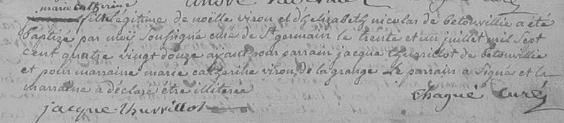 marie catherine
fille légitime de noille virou et d'Elizabeth nicolas de betouvillie a été
baptizé par moÿ soussigné curé de St germain le trente et un juillet mil sept
cent quatre vingt douze ayant pour parrain jacque thuvrillot de betouvillie
et pour marraine marie catherine virou de la grange le parrain a signé et la
marraine a déclaré être illiterée
chagné curé
jacque thuvrillot